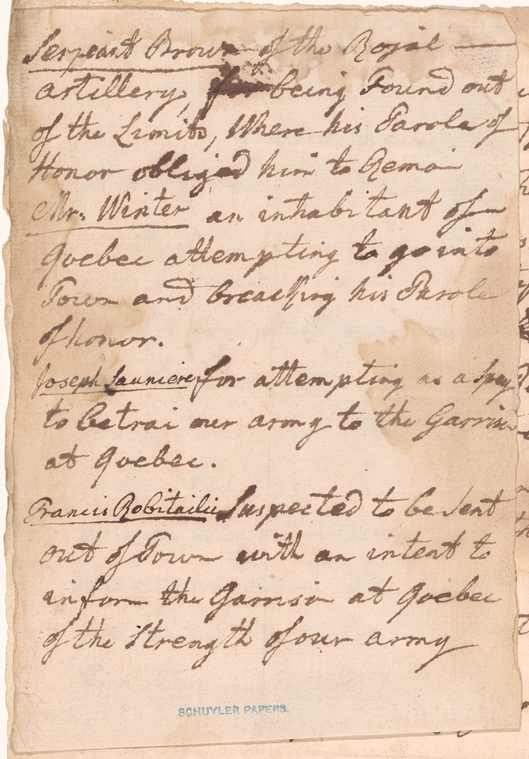 Serjeant Brown of the Royal
artillery, for being Found out
of the Limits, Where his Parole of
Honor obliged him to Remai
Mr. Winter an inhabitant of
Quebec attempting to go into
Town and breacking his Parole
of honor.
Joseph Sauniere for attempting as a Spey
to betrai our army to the Garrison
at Quebec.
Francis Robitailie Suspected to be Sent
out of Town with an intent to
inform the Garrison at Quebec
of the Strength of our army
SCHUYLER PAPERS.